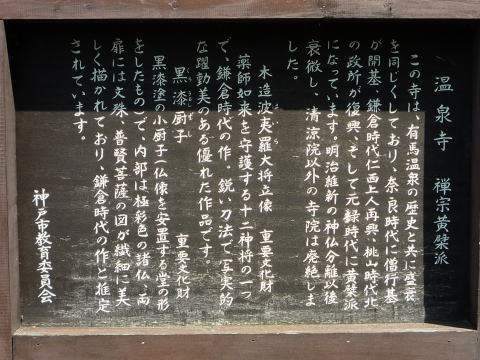 温泉寺　禅宗黄檗派
この寺は、有馬温泉の歴史と共に盛衰
を同じくしており、奈良時代に僧行基
が開基、鎌倉時代仁西上人再興、桃山時代北
の政所が復興、そして元録時代に黄檗派
になっています。明治維新の神仏分離以後
衰微し、清涼院以外の寺院は廃絶しま
した。
木造波夷羅大将立像　重要文化財
はいら
薬師如来を守護する十二神将の一つ
で、鎌倉時代の作。鋭い刀法で写実的
な躍動美のある優れた作品です。
黒漆厨子　重要文化財
くろうるしずし
黒漆塗の小厨子(仏像を安置するお堂の形
をしたもの)で、内部は極彩色の諸仏、両
扉には文殊、普賢菩薩の図が繊細に美
しく描かれており、鎌倉時代の作と推定
されています。
神戸市教育委員会